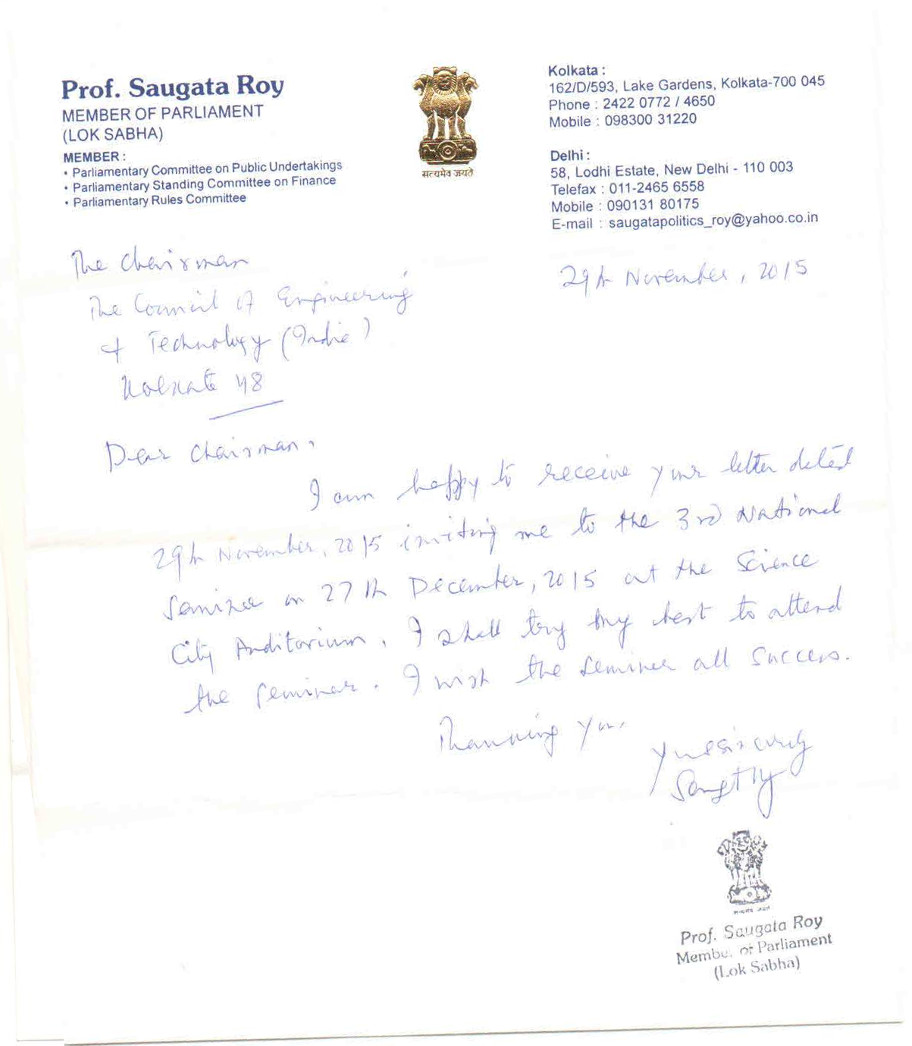 Prof. Saugata Roy
MEMBER OF PARLIAMENT
(LOK SABHA)
MEMBER :
• Parliamentary Committee on Public Undertakings
• Parliamentary Standing Committee on Finance
• Parliamentary Rules Committee
सत्यमेव जयते
Kolkata :
162/D/593, Lake Gardens, Kolkata-700 045
Phone : 2422 0772 / 4650
Mobile : 098300 31220
Delhi :
58, Lodhi Estate, New Delhi - 110 003
Telefax : 011-2465 6558
Mobile : 090131 80175
E-mail : saugatapolitics_roy@yahoo.co.in
29th November, 2015
The Chairman
The Council of Engineering
& Technology (India)
Kolkata 48
Dear Chairman,
I am happy to receive your letter dated
29th November, 2015 inviting me to the 3rd National
Seminar on 27th December, 2015 at the Science
City Auditorium. I shall try my best to attend
the seminar. I wish the seminar all success.
Thanking you,
Yours sincerely
Prof. Saugata Roy
Member of Parliament
(Lok Sabha)